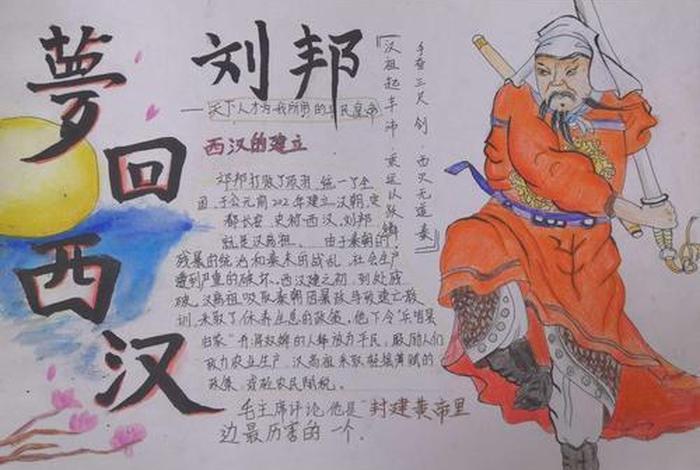 夢回西汉
刘邦
——天下人才为我所用的平民皇帝
『汉祖起丰沛，乘运以跃鳞
手奋三尺剑，西灭无道秦』
西汉的建立
邓邦打败了项羽，统一了全
国，于公元前202年建立汉朝，定
都长安，史称西汉，刘邦
就是汉高祖。由于秦朝的
残暴的统治和秦末的战乱，社会生产
遭到严重的破坏。西汉建立初，到处残
破，汉高祖吸取秦朝因暴政导致速亡教
训，采取了休养生息的政策，他下令“兵皆罢
归家”并将奴婢的人释放为平民，鼓励人们
致力农业生产，汉高祖采取轻徭薄赋的
政策，减轻农民赋税。
毛主席评论，他是“封建黄帝里
边最厉害的一个.